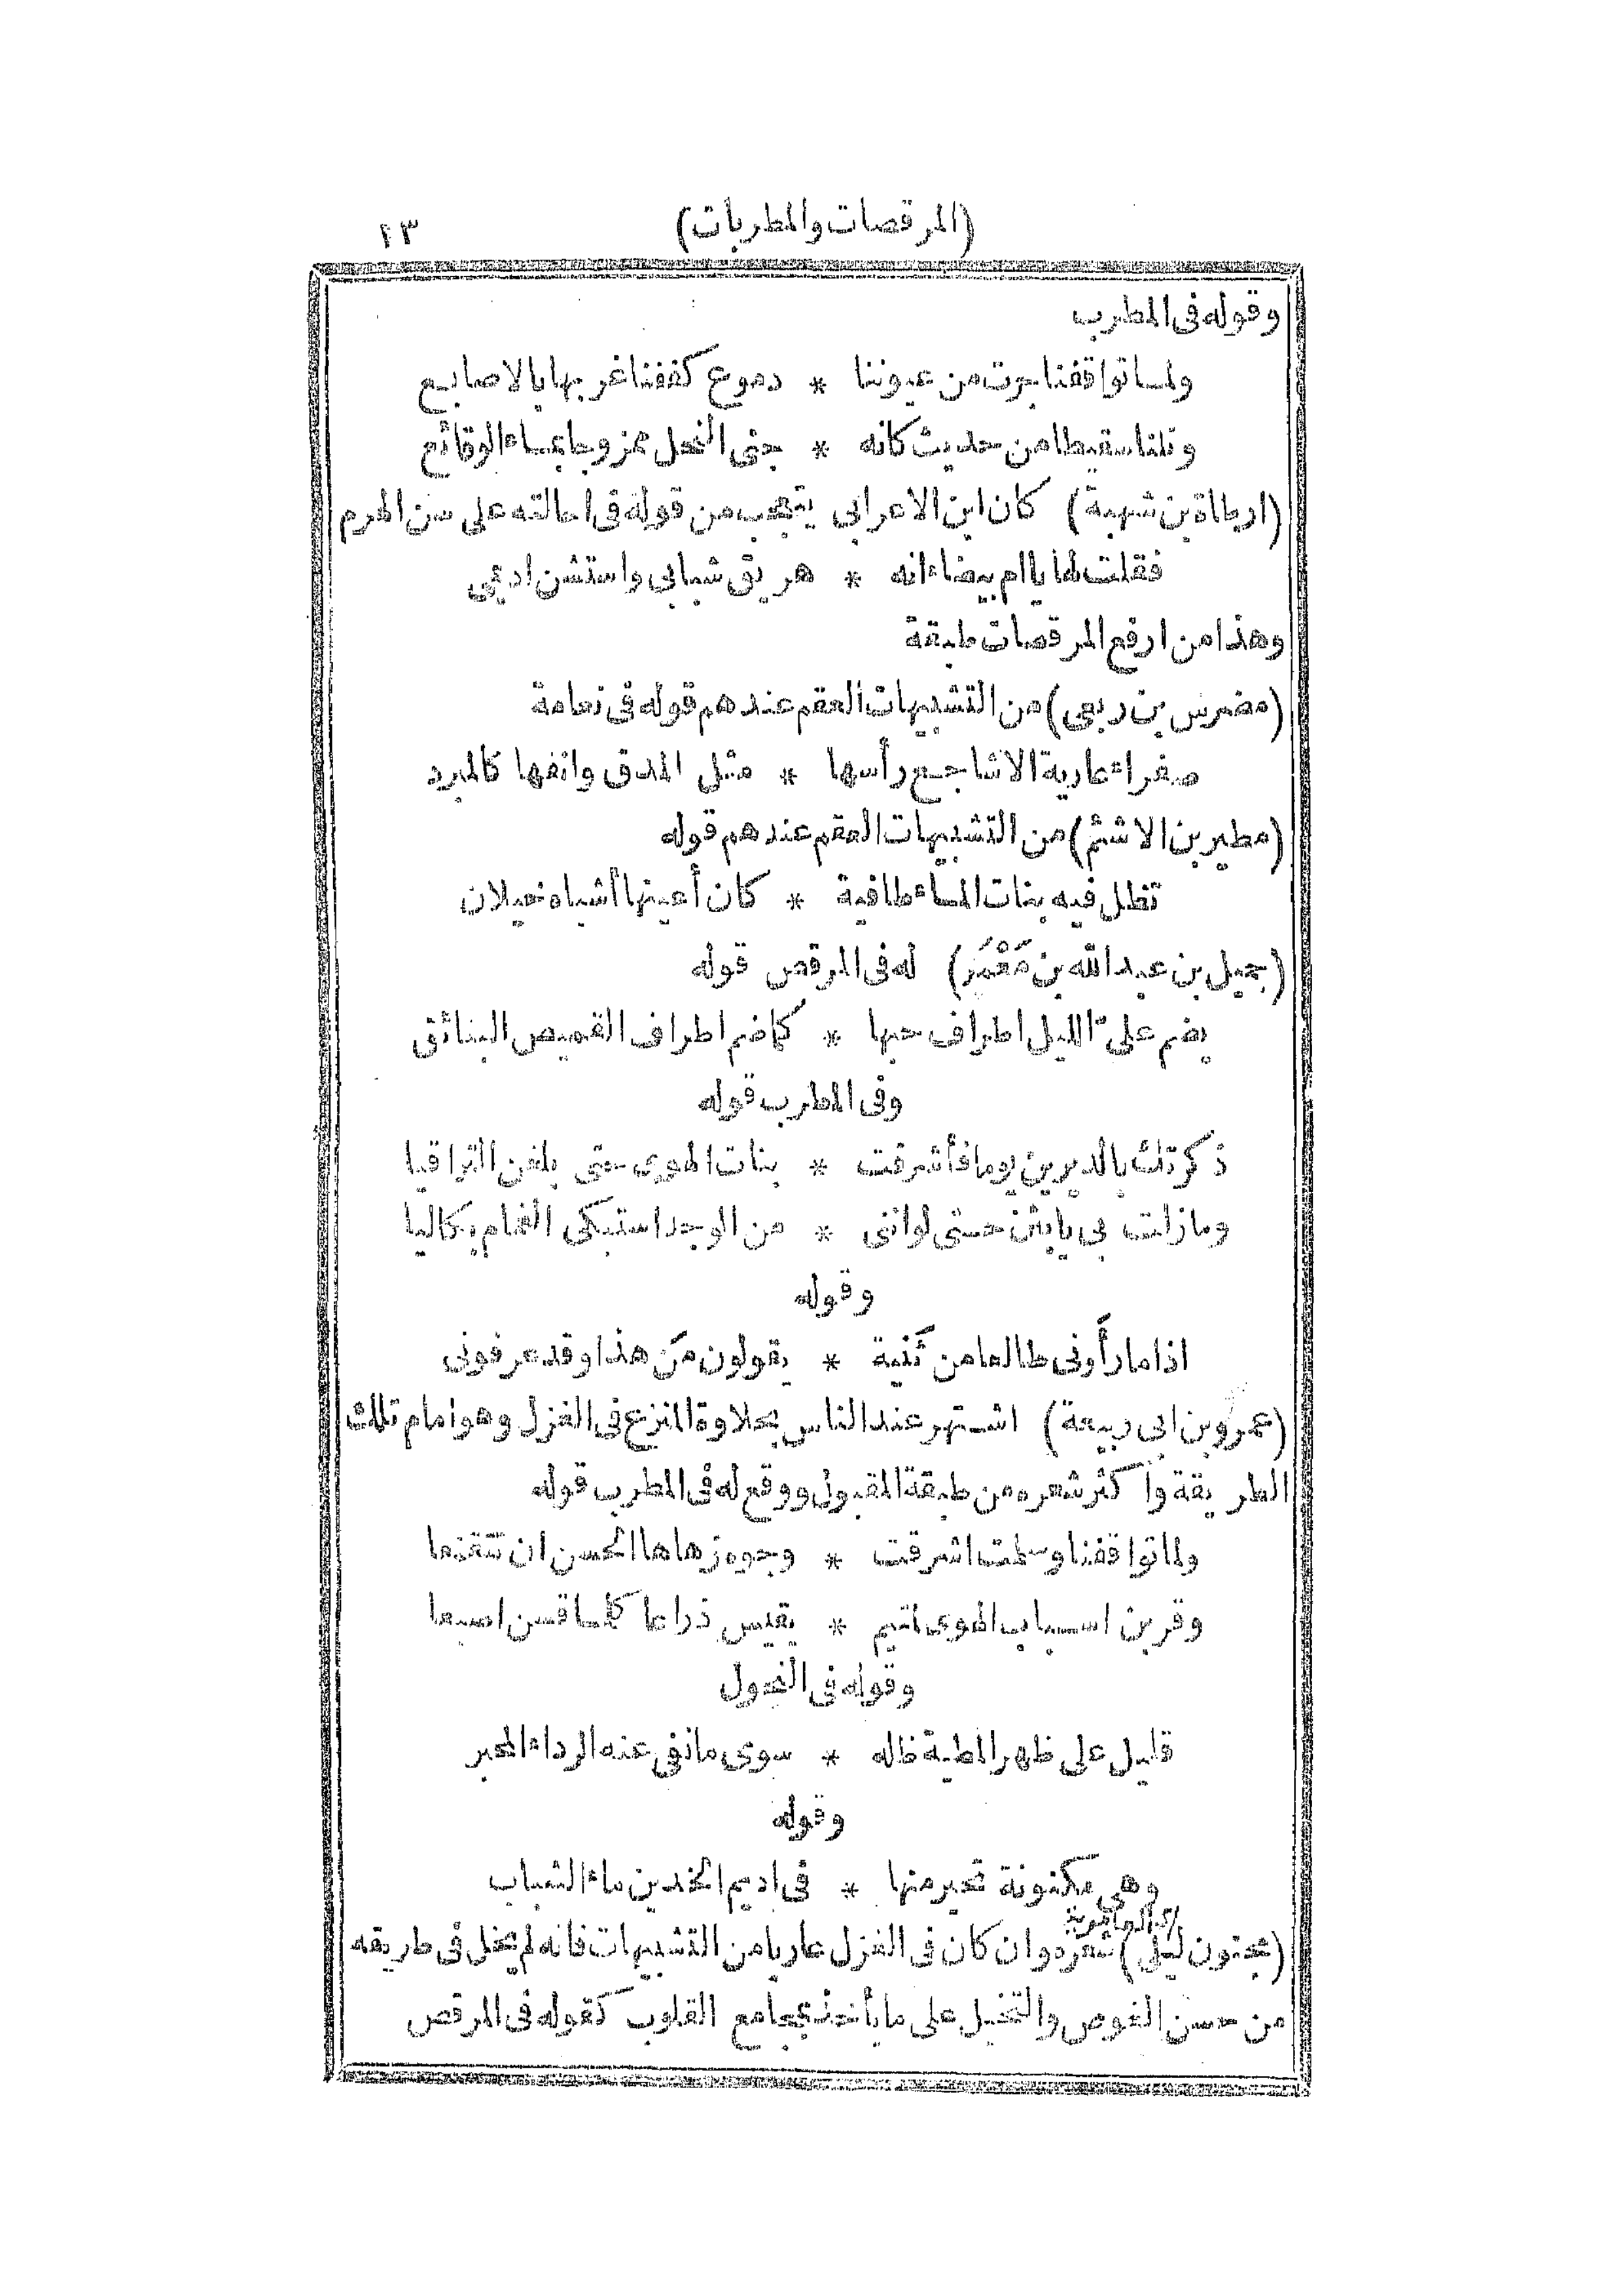 (المرقصات والمطربات)
١٣
وقوله فى المطرب
ولما تواقفنا جرت من عيوننا * دموع كففنا غربها بالاصابع
ونلنا سقيطا من حديث كانه * جنى النحل ممزوجا بماء الوقائع
(ارطاة بن شهبة) كان ابن الاعرابى يتعجب من قوله فى احالته على سن الهرم
فقلت لها يا ام بيضاء انه * هريق شبابى واستشن اديمى
وهذا من ارفع المرقصات طبقة
(مضرس بن ربعى) من التشبيهات العقم عندهم قوله فى نعامة
صفراء عارية الاشاجع رأسها * مثل المدق وانفها كالمبرد
(مطير بن الاشثم) من التشبيهات العقم عندهم قوله
تظل فيه بنات الماء طافية * كان أعينها أشباه خيلان
(جميل بن عبد الله بن مَعْمَر) له فى المرقص قوله
يضم علىّ الليل اطراف حبها * كما ضم اطراف القميص البنائق
وفى المطرب قوله
ذكرتك بالديرين يوما فأشرفت * بنات الهوى حتى بلغن التراقيا
وما زلت بى يا بثن حتى لو اننى * من الوجد استبكى الغمام بكاليا
وقوله
اذا ما رأونى طالعا من ثنية * يقولون مَن هذا وقد عرفونى
(عمرو بن ابى ربيعة) اشتهر عند الناس بحلاوة المنزع فى الغزل وهو امام تلك
الطريقة وأكثر شعره من طبقة المقبول ووقع له فى المطرب قوله
ولما تواقفنا وسلمت اشرقت * وجوه زهاها الحسن ان تتقنعا
وقربن اسباب الهوى لمتيم * يقيس ذراعا كلما قسن اصبعا
وقوله فى النحول
قليل على ظهر المطية ظله * سوى ما نفى عنه الرداء المحبر
وقوله
وهى مكنونة تحير منها * فى اديم الخدين ماء الشباب
(مجنون ليلى) شعره وان كان فى الغزل عاريا من التشبيهات فانه لم يخل فى طريقه
من حسن الغوص والتخيل على ما يأخذ بمجامع القلوب كقوله فى المرقص